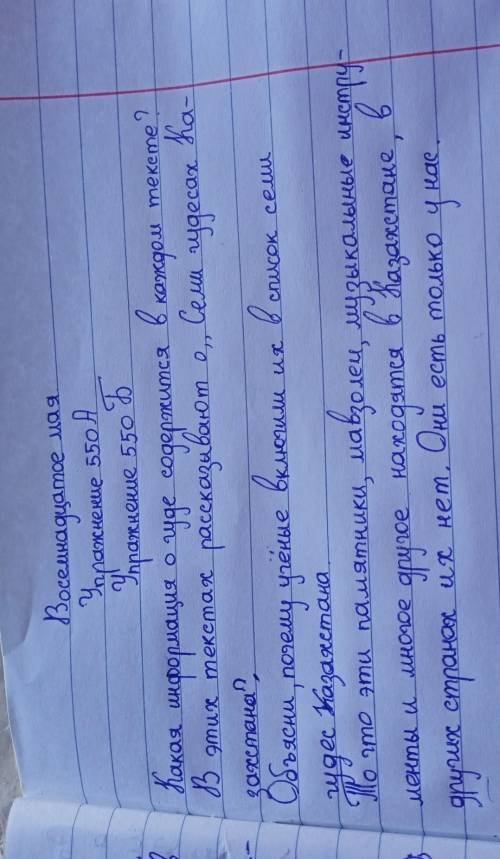 Восемнадцатое мая
Упражнение 550 А
Упражнение 550 Б
Какая информация о чуде содержится в каждом тексте?
В этих текстах рассказывают о „Семи чудесах Ка-
захстана”.
Объясни, почему учёные включили их в список семи
чудес Казахстана.
То что эти памятники, мавзолеи, музыкальные инстру-
менты и многое другое находятся в Казахстане, в
других странах их нет. Они есть только у нас.